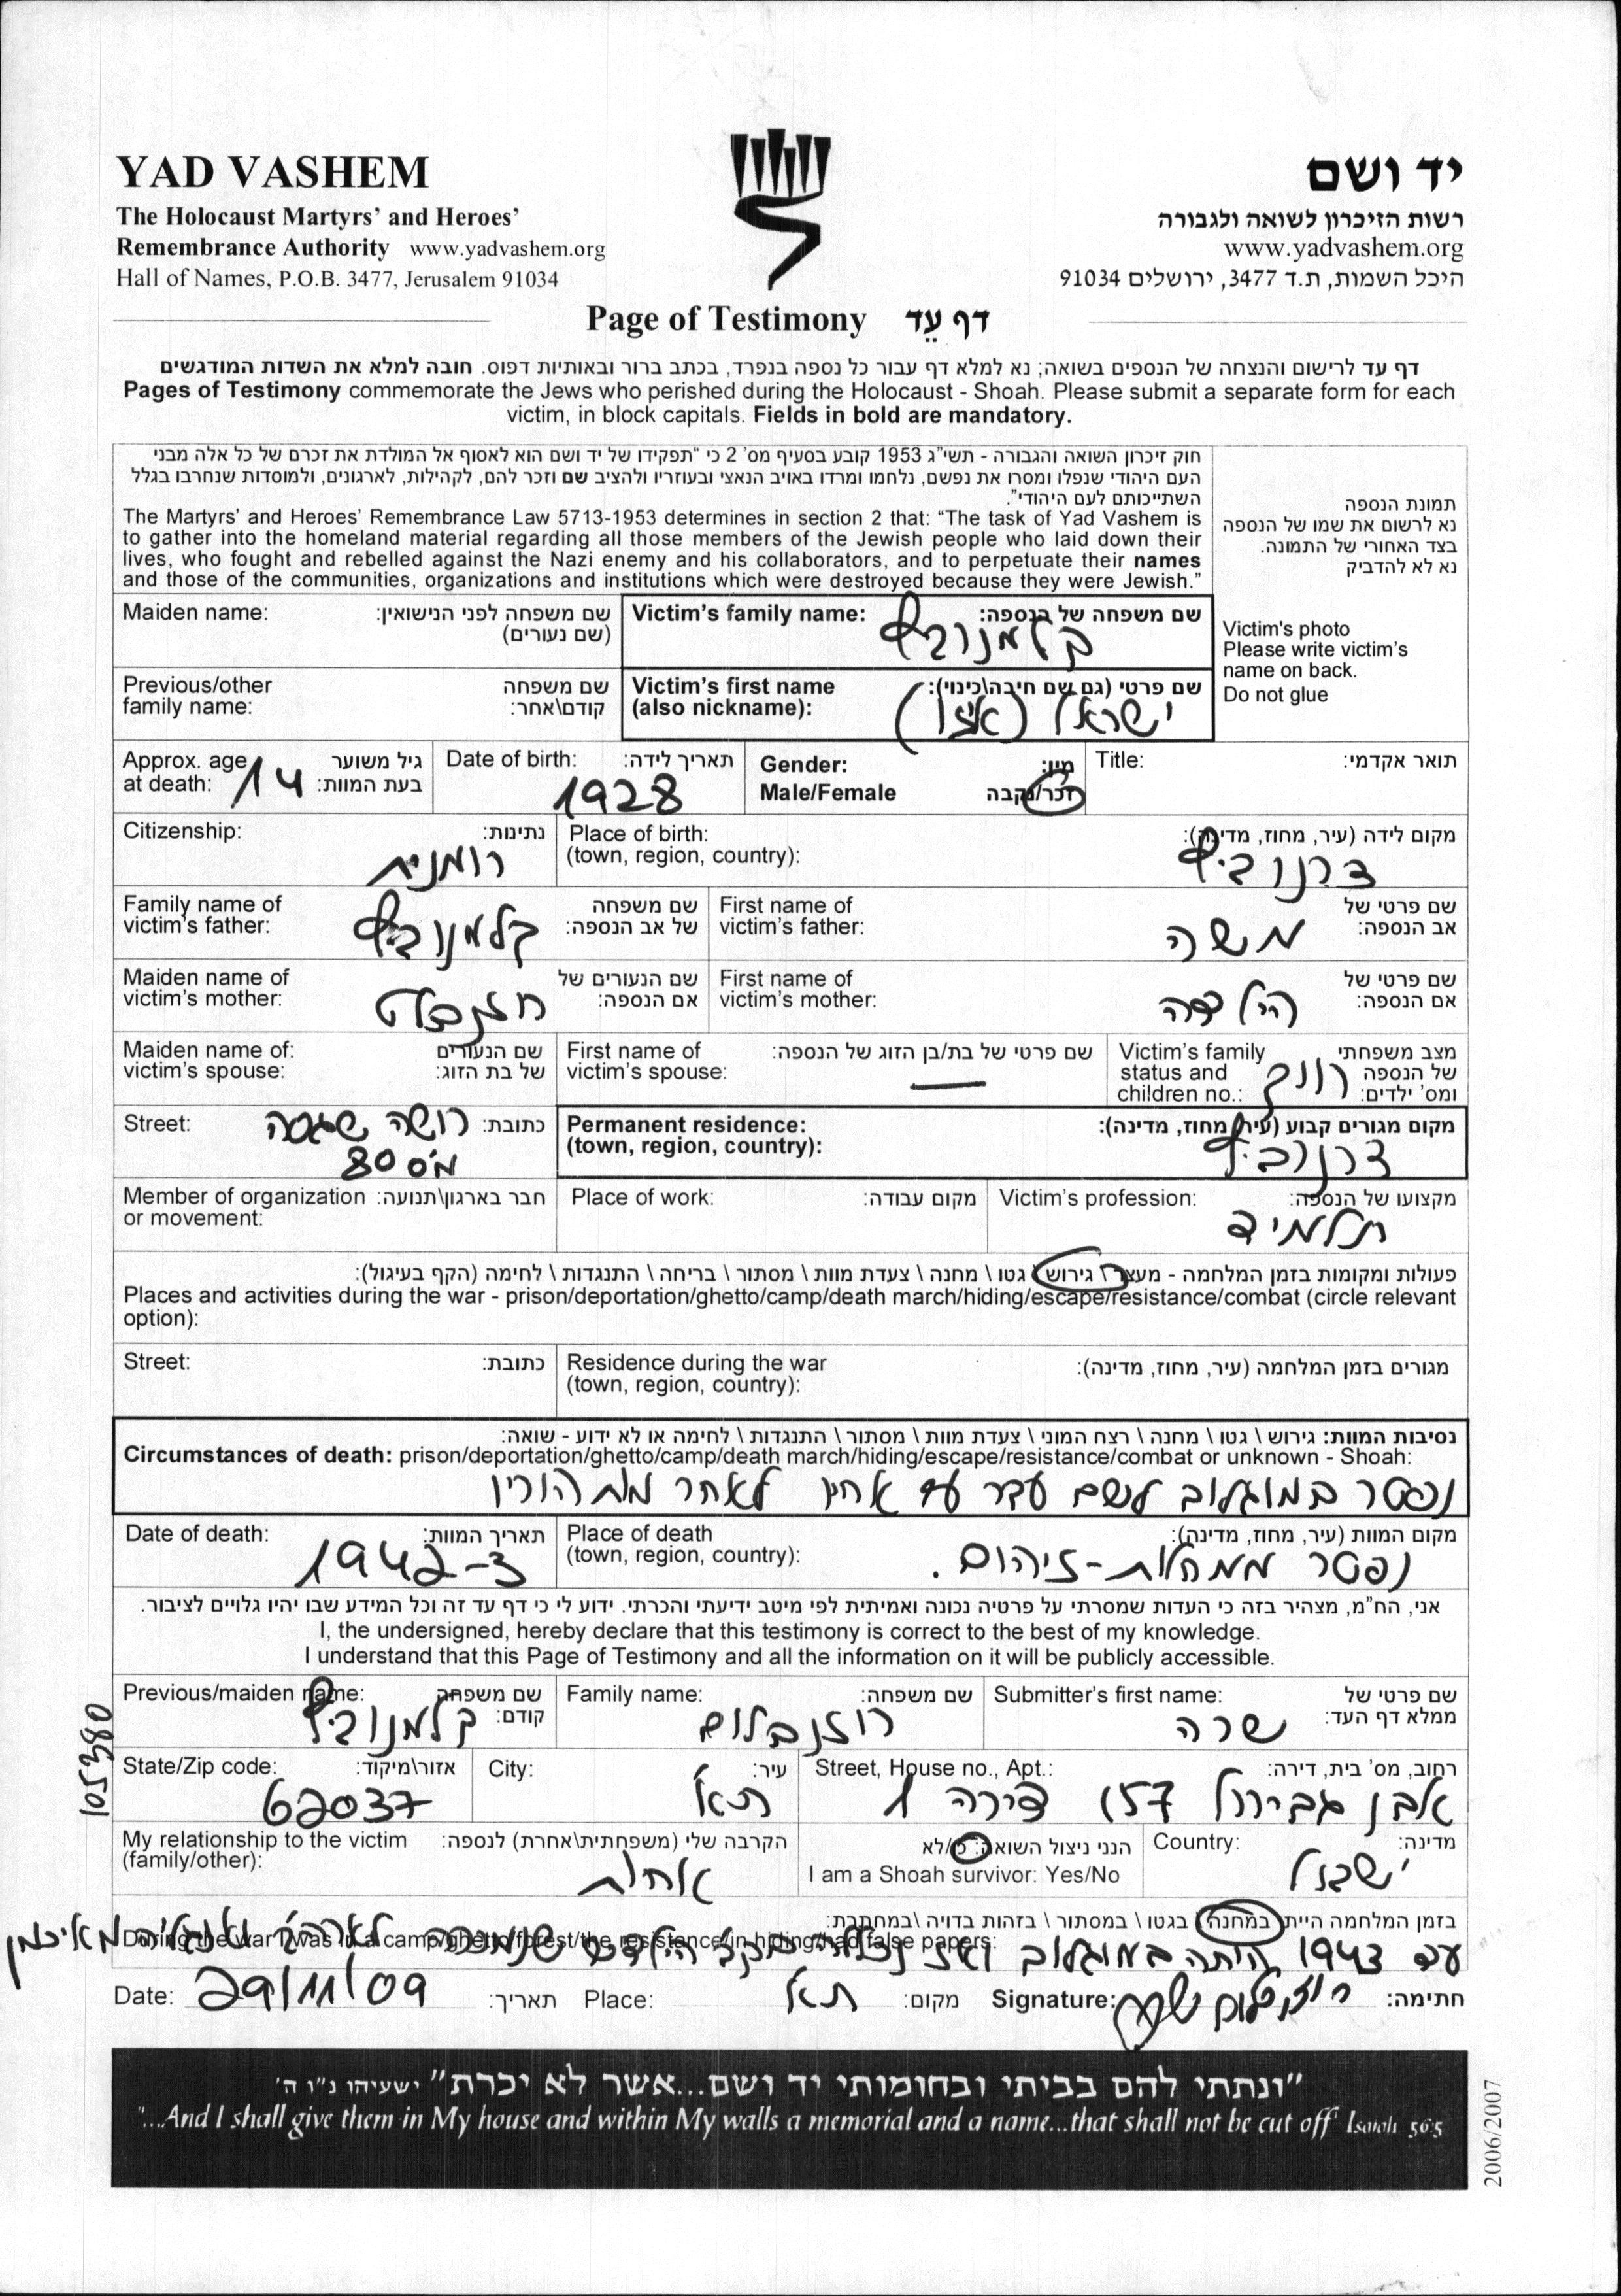 YAD VASHEM
The Holocaust Martyrs' and Heroes'
Remembrance Authority www.yadvashem.org
Hall of Names, P.O.B. 3477, Jerusalem 91034
יד ושם
רשות הזיכרון לשואה ולגבורה
www.yadvashem.org
היכל השמות, ת.ד 3477, ירושלים 91034
Page of Testimony דף עֵד
דף עד לרישום והנצחה של הנספים בשואה; נא למלא דף עבור כל נספה בנפרד, בכתב ברור ובאותיות דפוס. חובה למלא את השדות המודגשים
Pages of Testimony commemorate the Jews who perished during the Holocaust - Shoah. Please submit a separate form for each
victim, in block capitals. Fields in bold are mandatory.
חוק זיכרון השואה והגבורה - תשי"ג 1953 קובע בסעיף מס' 2 כי "תפקידו של יד ושם הוא לאסוף אל המולדת את זכרם של כל אלה מבני
העם היהודי שנפלו ומסרו את נפשם, נלחמו ומרדו באויב הנאצי ובעוזריו ולהציב שם וזכר להם, לקהילות, לארגונים, ולמוסדות שנחרבו בגלל
השתייכותם לעם היהודי".
The Martyrs' and Heroes' Remembrance Law 5713-1953 determines in section 2 that: "The task of Yad Vashem is
to gather into the homeland material regarding all those members of the Jewish people who laid down their
lives, who fought and rebelled against the Nazi enemy and his collaborators, and to perpetuate their names
and those of the communities, organizations and institutions which were destroyed because they were Jewish."
תמונת הנספה
נא לרשום את שמו של הנספה
בצד האחורי של התמונה.
נא לא להדביק
Victim's photo
Please write victim's
name on back.
Do not glue
Maiden name: שם משפחה לפני הנישואין:
(שם נעורים)
Victim's family name: שם משפחה של הנספה:
קלמנוביץ
Previous/other שם משפחה
family name: קודם\אחר:
Victim's first name שם פרטי (גם שם חיבה\כינוי):
(also nickname): ישראל (איצו)
Approx. age גיל משוער
at death: 14 בעת המוות:
Date of birth: תאריך לידה:
1928
Gender: מין:
Male/Female זכר/נקבה
Title: תואר אקדמי:
Citizenship: נתינות:
רומנית
Place of birth: מקום לידה (עיר, מחוז, מדינה):
(town, region, country):
צרנוביץ
Family name of שם משפחה
victim's father: של אב הנספה:
קלמנוביץ
First name of שם פרטי של
victim's father: אב הנספה:
משה
Maiden name of שם הנעורים של
victim's mother: אם הנספה:
First name of שם פרטי של
victim's mother: אם הנספה:
הילדה
Maiden name of: שם הנעורים
victim's spouse: של בת הזוג:
First name of שם פרטי של בת/בן הזוג של הנספה:
victim's spouse: —
Victim's family מצב משפחתי
status and של הנספה
children no.: ומס' ילדים:
רווק
Street: כתובת:
מס 80
Permanent residence: מקום מגורים קבוע (עיר, מחוז, מדינה):
(town, region, country):
צרנוביץ
Member of organization חבר בארגון\תנועה:
or movement:
Place of work: מקום עבודה:
Victim's profession: מקצועו של הנספה:
תלמיד
פעולות ומקומות בזמן המלחמה - מעצר \ גירוש \ גטו \ מחנה \ צעדת מוות \ מסתור \ בריחה \ התנגדות \ לחימה (הקף בעיגול):
Places and activities during the war - prison/deportation/ghetto/camp/death march/hiding/escape/resistance/combat (circle relevant
option):
Street: כתובת:
Residence during the war מגורים בזמן המלחמה (עיר, מחוז, מדינה):
(town, region, country):
נסיבות המוות: גירוש \ גטו \ מחנה \ רצח המוני \ צעדת מוות \ מסתור \ התנגדות \ לחימה או לא ידוע - שואה:
Circumstances of death: prison/deportation/ghetto/camp/death march/hiding/escape/resistance/combat or unknown - Shoah:
נפטר במוגלוב לשם עבר עם אחיו לאחר מות הוריו
Date of death: תאריך המוות:
1942-3
Place of death מקום המוות (עיר, מחוז, מדינה):
(town, region, country):
נפטר ממחלות-זיהום.
אני, הח"מ, מצהיר בזה כי העדות שמסרתי על פרטיה נכונה ואמיתית לפי מיטב ידיעתי והכרתי. ידוע לי כי דף עד זה וכל המידע שבו יהיו גלויים לציבור.
I, the undersigned, hereby declare that this testimony is correct to the best of my knowledge.
I understand that this Page of Testimony and all the information on it will be publicly accessible.
Previous/maiden name: שם משפחה
קודם:
קלמנוביץ
Family name: שם משפחה:
רוזנבלום
Submitter's first name: שם פרטי של
ממלא דף העד:
שרה
105380
State/Zip code: אזור\מיקוד:
62037
City: עיר:
ת"א
Street, House no., Apt.: רחוב, מס' בית, דירה:
אבן גבירול 157 דירה 1
My relationship to the victim הקרבה שלי (משפחתית\אחרת) לנספה:
(family/other):
אחות
הנני ניצול השואה: כן/לא
I am a Shoah survivor: Yes/No
Country: מדינה:
ישראל
בזמן המלחמה היית במחנה \ בגטו \ במסתור \ בזהות בדויה \במחתרת:
During the war I was in a camp/ghetto/forest/the resistance/in hiding/had false papers:
עד 1943 היתה במוגלוב ואז
Date: 29/11/09 תאריך:
Place: ת"א מקום:
Signature: רוזנבלום שרה חתימה:
"ונתתי להם בביתי ובחומותי יד ושם...אשר לא יכרת" ישעיהו נ"ו ה'
"...And I shall give them in My house and within My walls a memorial and a name...that shall not be cut off" Isaiah 56:5
2006/2007